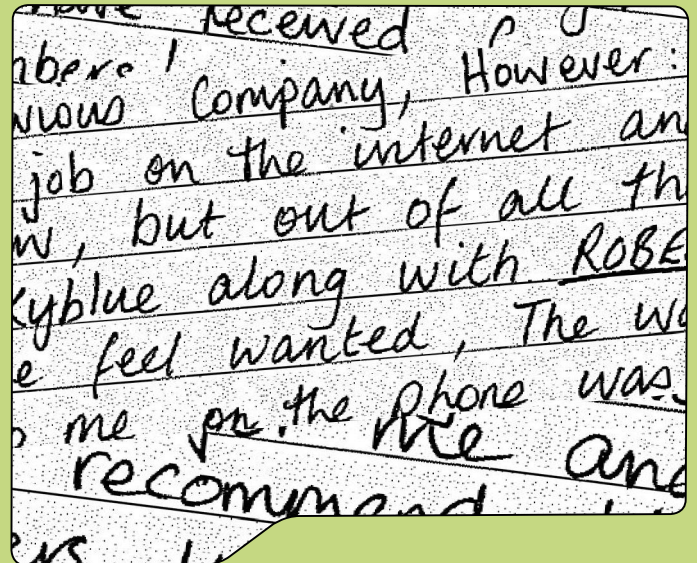 have received
vious Company, However:
job on the internet an
w, but out of all th
kyblue along with ROBE
e feel wanted, The wa
me on the phone was
me and
recommend
ers